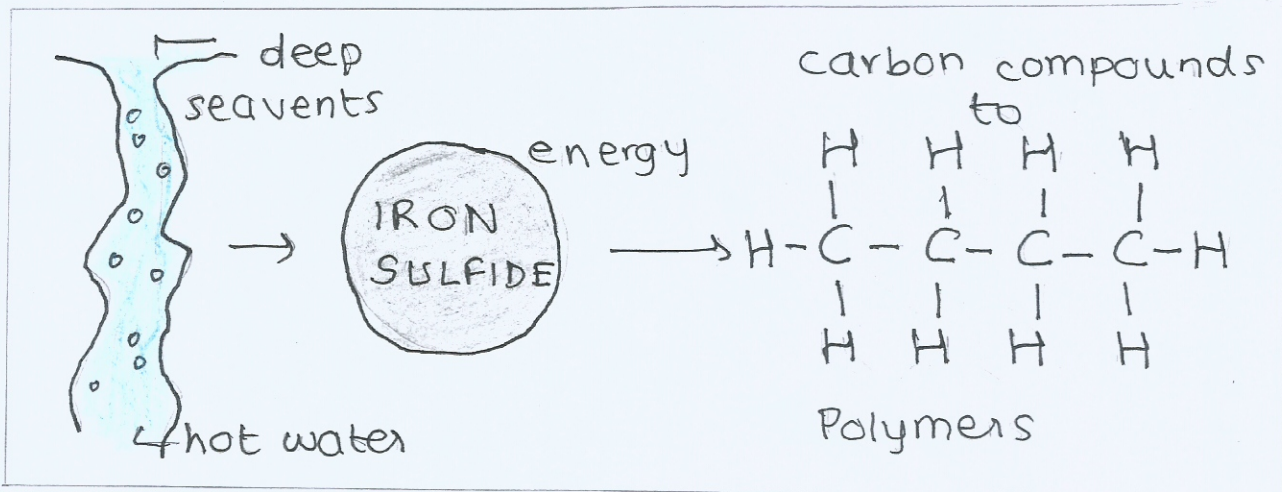 deep
seavents
hot water
energy
IRON
SULFIDE
carbon compounds
to
H H H H
H-C-C-C-C-H
H H H H
Polymers